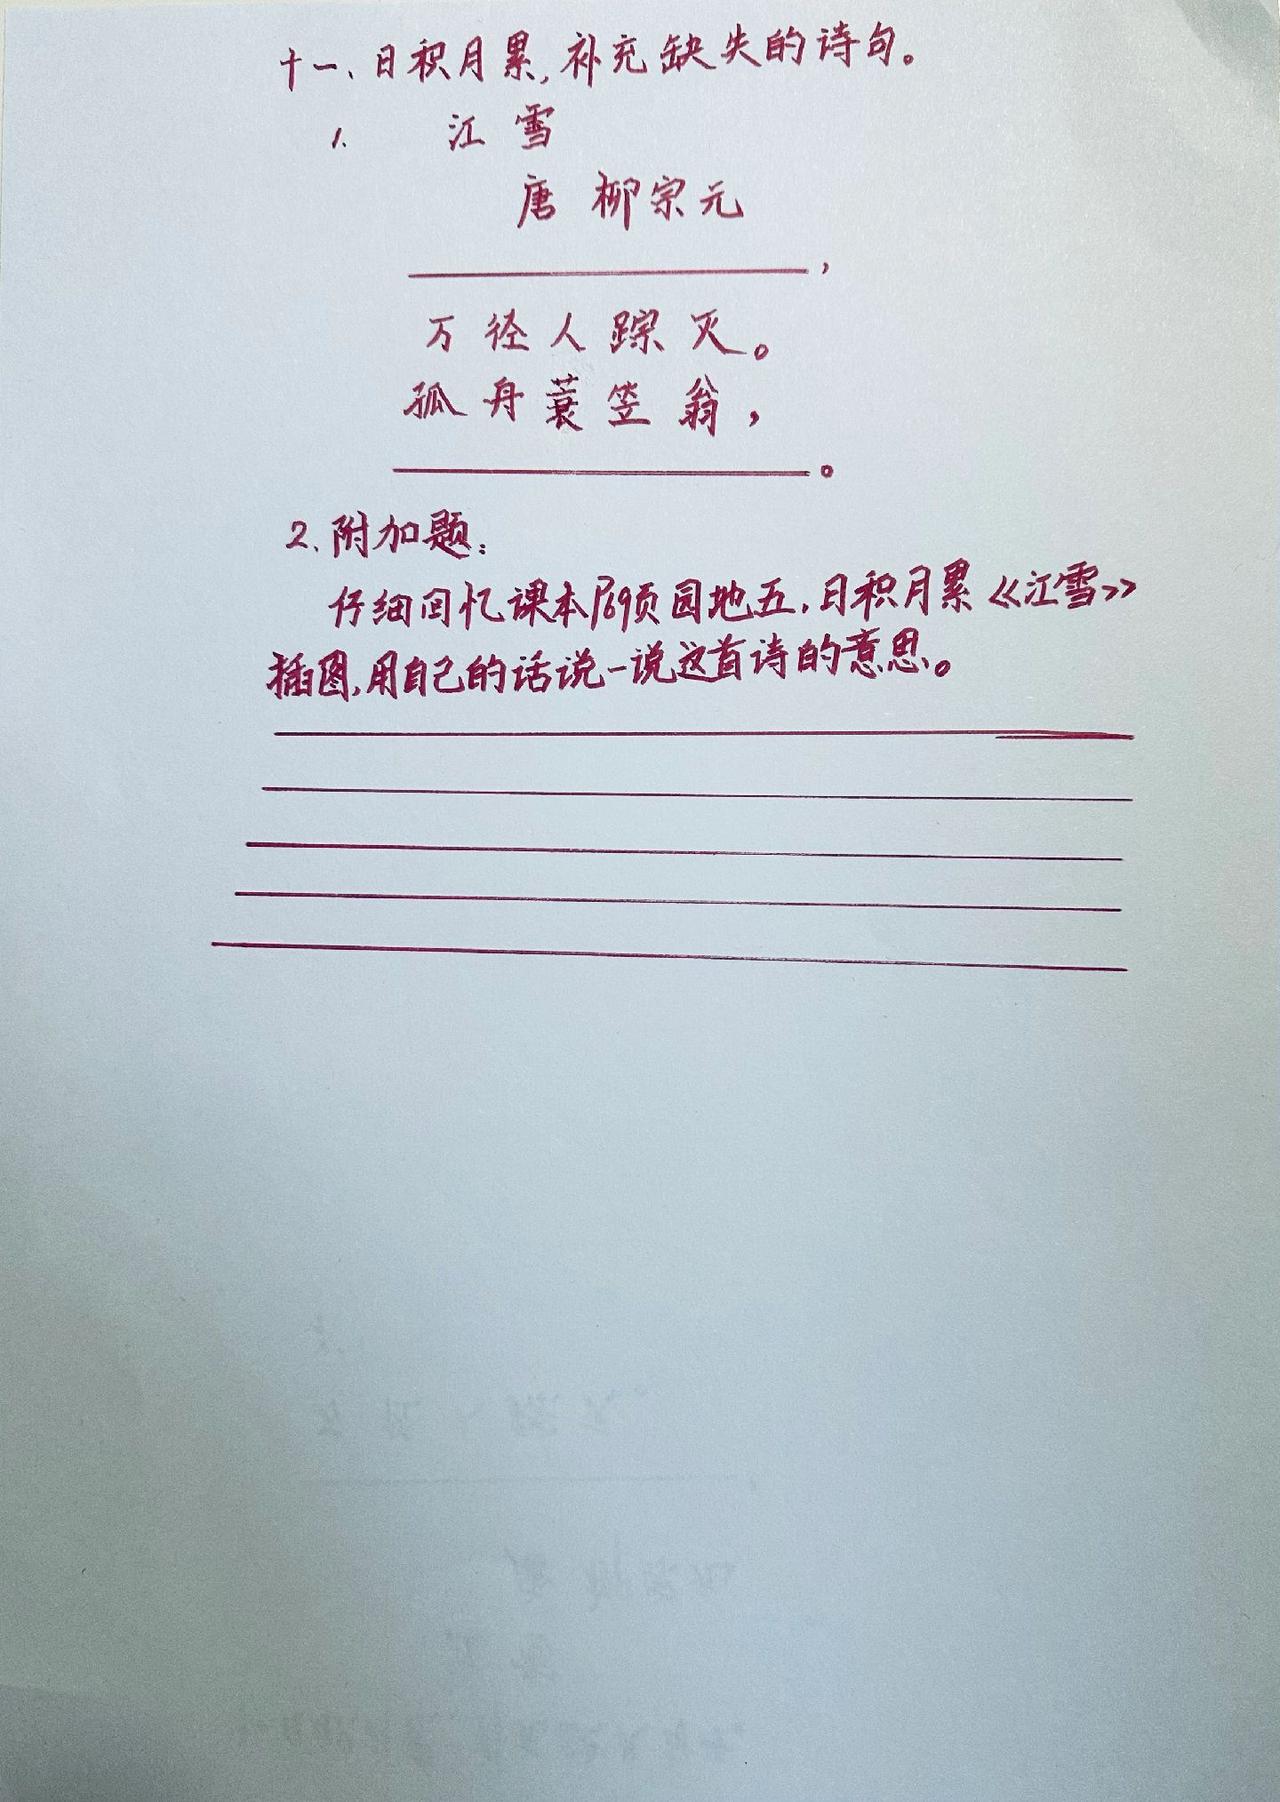 十一、日积月累,补充缺失的诗句。
1. 江雪
唐 柳宗元
，
万径人踪灭。
孤舟蓑笠翁，
。
2.附加题：
仔细回忆课本P69页园地五,日积月累《江雪》
插图,用自己的话说一说这首诗的意思。